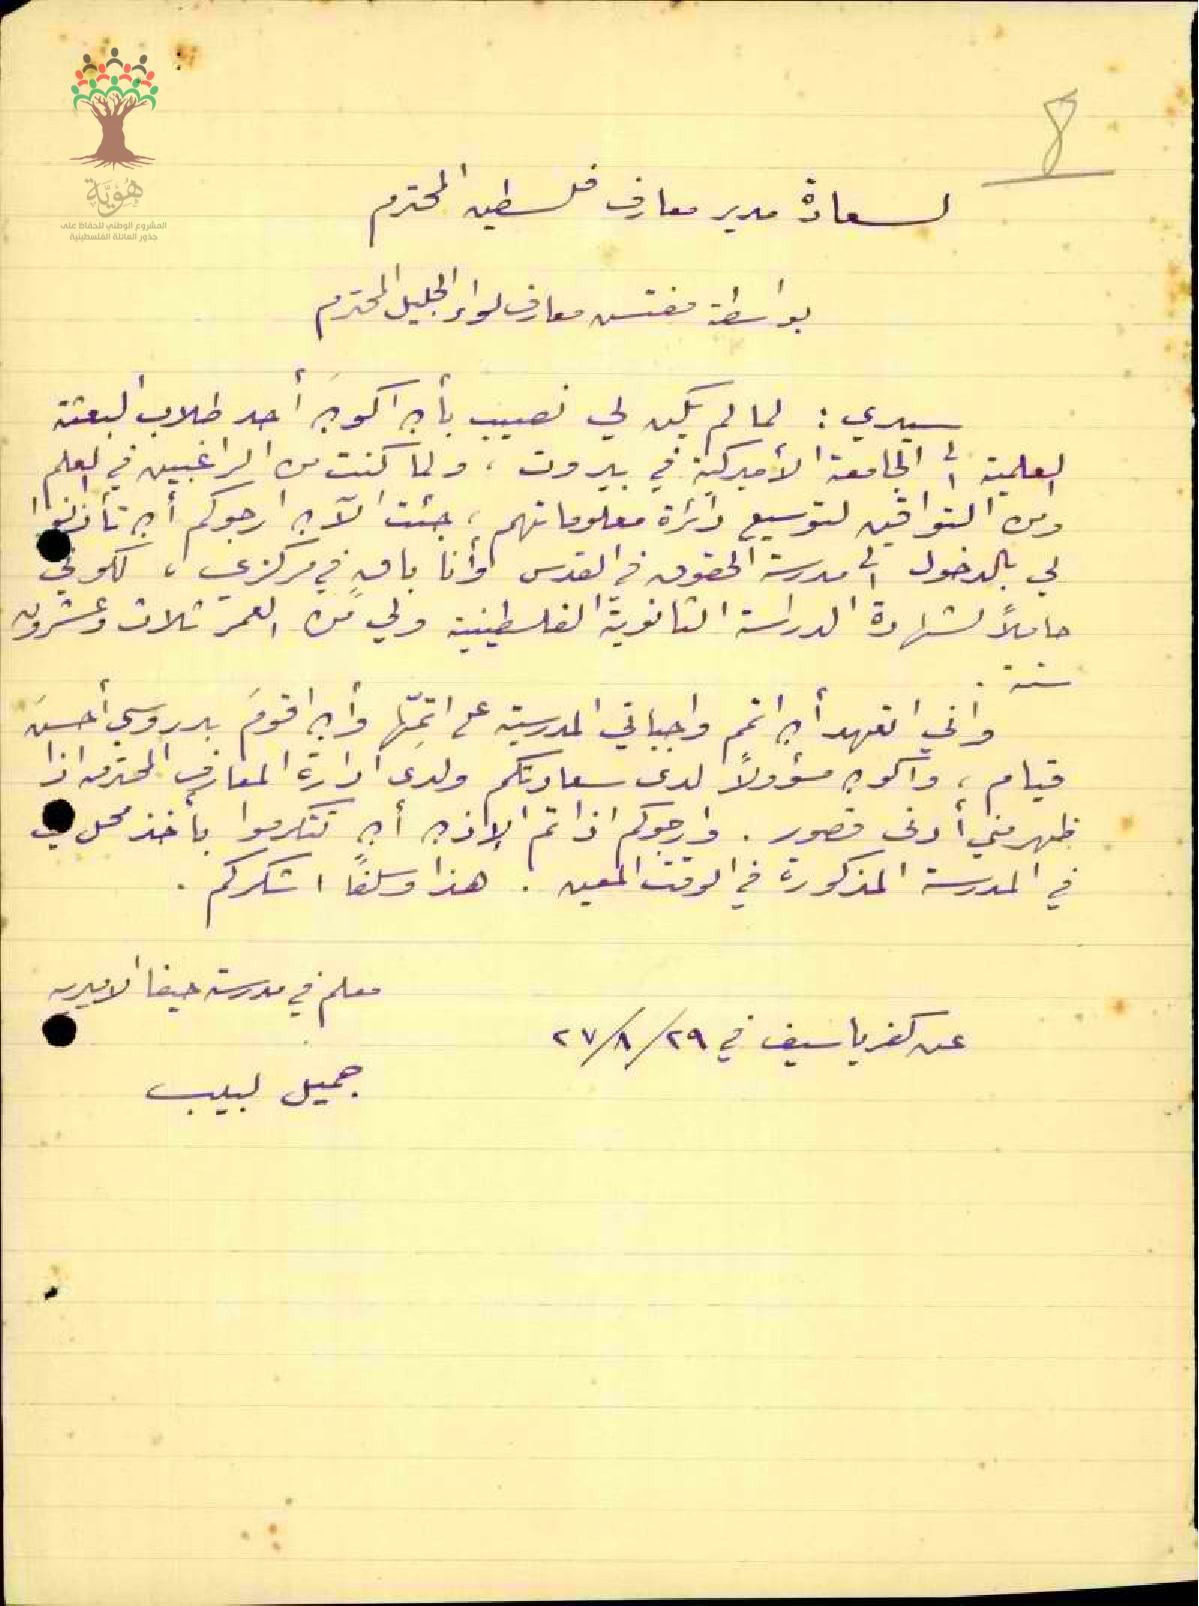 ٨
هُوِيَّة
المشروع الوطني للحفاظ على
جذور العائلة الفلسطينية
لسعادة مدير معارف فلسطين المحترم
بواسطة مفتش معارف لواء الجليل المحترم
سيدي : لما لم يكن لي نصيب بأن اكونَ أحد طلاب البعثة
العلمية الى الجامعة الأميركية في بيروت ، ولما كنت من الراغبين في العلم
ومن التواقين لتوسيع دائرة معلوماتهم ، جئت الآن ارجوكم أن تأذنوا
لي بالدخول الى مدرسة الحقوق في القدس وأنا باقٍ في مركزي ، لكوني
حاملاً لشهادة الدراسة الثانوية الفلسطينية ولي من العمر ثلاث وعشرون
سنة .
واني اتعهد أن اتمم واجباتي المدرسية على اتمِّها وأن اقومَ بدروسي أحسنَ
قيام ، وأكون مسؤولاً لدى سعادتكم ولدى ادارة المعارف المحترمه اذا
ظهر مني أدنى قصور . وارجوكم اذا تم الإذن أن تتكرموا بأخذ محل لي
في المدرسة المذكورة في الوقت المعين . هذا وسلفاً اشكركم .
معلم في مدرسة حيفا الاميريه
عن كفرياسيف في ٢٩/٨/٢٧
جميل لبيب